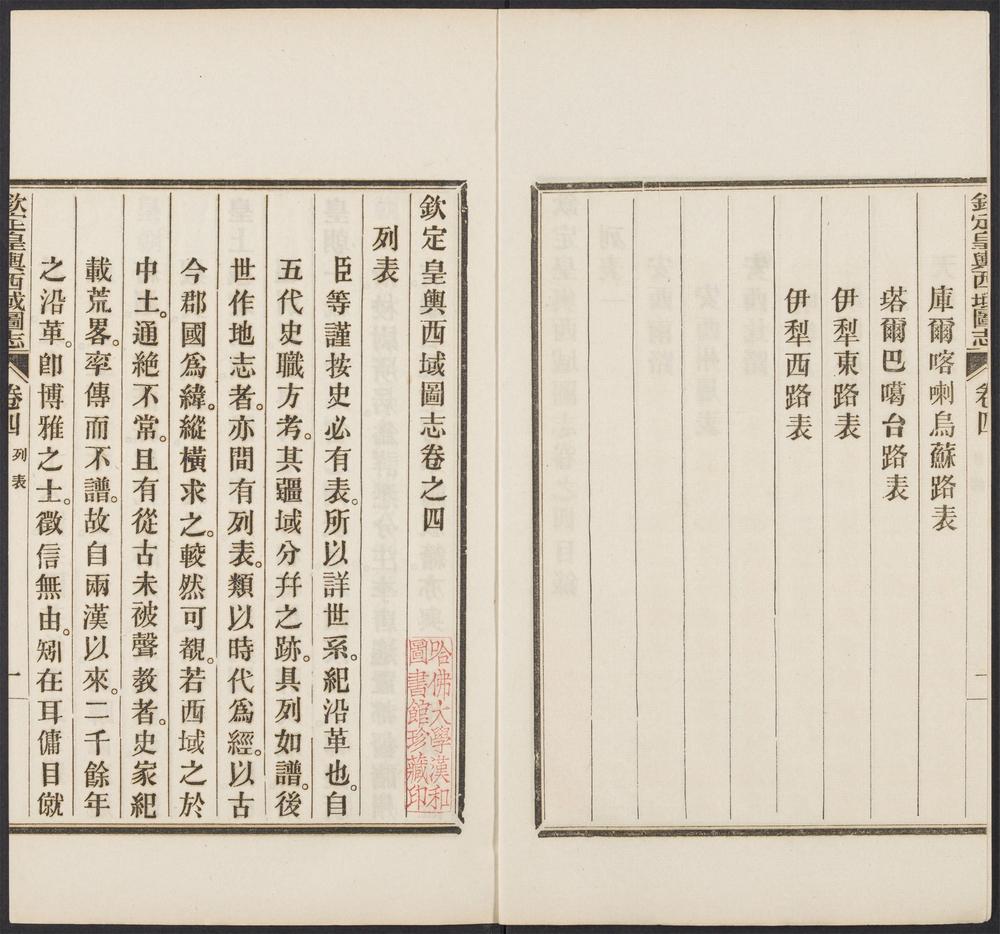 欽定皇輿西域圖志
卷四
二
庫爾喀喇烏蘇路表
塔爾巴噶台路表
伊犁東路表
伊犁西路表
欽定皇輿西域圖志卷之四
列表
臣等謹按史必有表。所以詳世系。紀沿革也。自
五代史職方考。其疆域分幷之跡。具列如譜。後
世作地志者。亦間有列表。類以時代爲經。以古
今郡國爲緯。縱橫求之。較然可覩。若西域之於
中土。通絶不常。且有從古未被聲教者。史家紀
載荒畧。率傳而不譜。故自兩漢以來。二千餘年
之沿革。卽博雅之士。徵信無由。矧在耳傭目僦
欽定皇輿西域圖志
卷四
列表
一
哈佛大學漢和
圖書館珍藏印